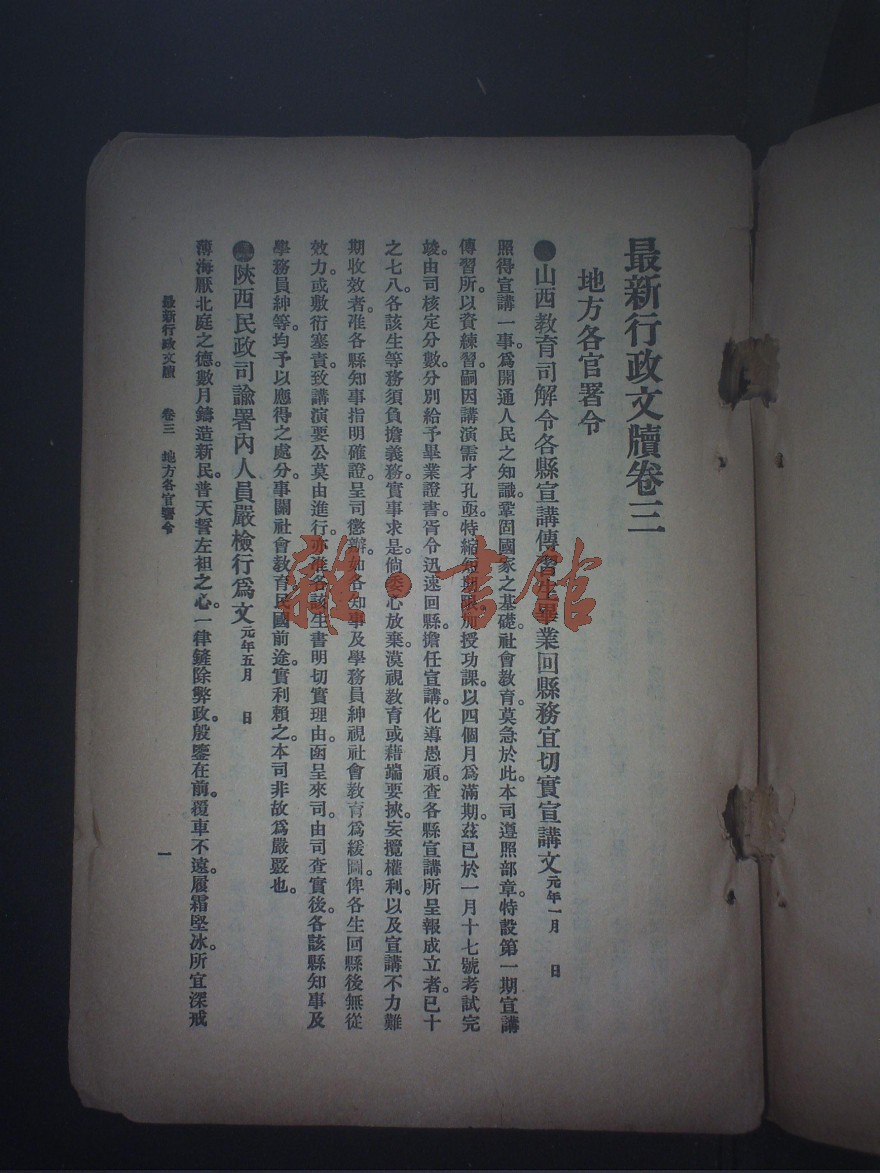 最新行政文牘卷三
地方各官署令
●山西教育司解令各縣宣講傳習生畢業回縣務宜切實宣講文元年一月　日
照得宣講一事。爲開通人民之知識。鞏固國家之基礎。社會教育。莫急於此。本司遵照部章。特設第一期宣講
傳習所。以資練習。嗣因講演需才孔亟。特縮短期限。加授功課。以四個月爲滿期。茲已於一月十七號考試完
竣。由司核定分數。分別給予畢業證書。胥令迅速回縣。擔任宣講。化導愚頑。查各縣宣講所呈報成立者。已十
之七八。各該生等務須負擔義務。實事求是。倘委心放棄。漠視教育。或藉端要挾。妄攬權利。以及宣講不力。難
期收效者。准各縣知事指明確證。呈司懲辦。如各知事及學務員紳視社會教育爲緩圖。俾各生回縣後無從
效力。或敷衍塞責。致講演要公莫由進行。亦准各該生書明切實理由。函呈來司。由司查實後。各該縣知事及
學務員紳等。均予以應得之處分。事關社會教育。民國前途。實利賴之。本司非故爲嚴覈也。
●陝西民政司諭署內人員嚴檢行爲文元年五月　日
薄海厭北庭之德。數月鑄造新民。普天誓左袒之心。一律鏟除弊政。殷鑒在前。覆車不遠。履霜堅冰。所宜深戒
最新行政文牘　卷三　地方各官署令
一
雜·書館